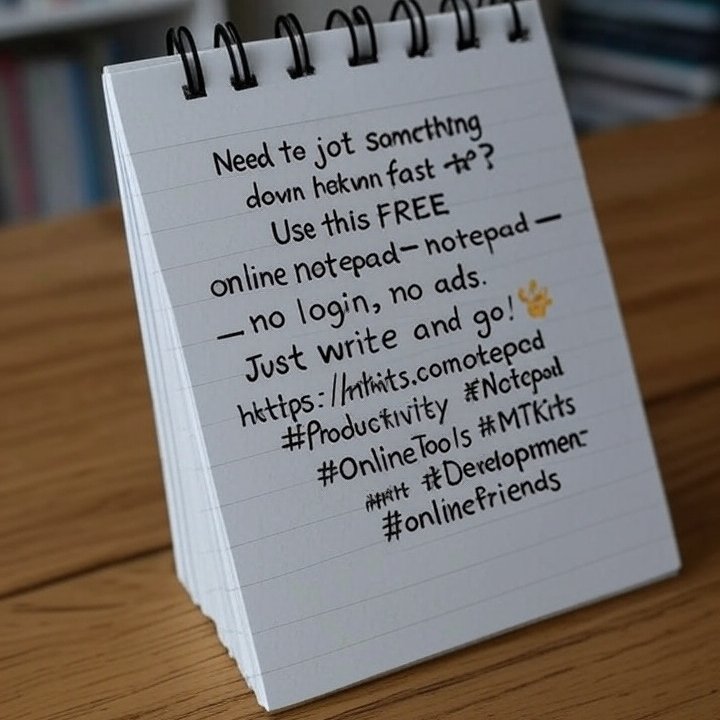 Need te jot samcthing
dovn hekvnn fast ?
Use this FREE
online notepad— notepad —
— no login, no ads.
Just write and go!
hkttps://mhits.comotepad
#Productivity #Notepad
#OnlineTools #MTKits
#Developmen-
#onlinefriends